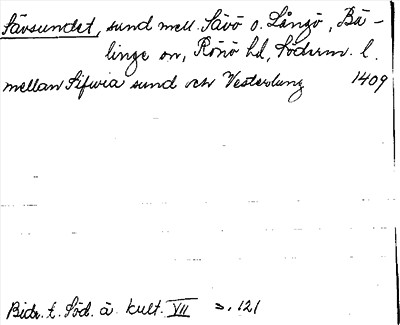 Sävsundet, sund mell. Sävö o. Långö, Bä-
linge sn, Rönö hd, Söderm. l.
mellan Sifwia sund och Vesterlung 1409
Bidr. t. Söd. ä. kult. VII s. 121